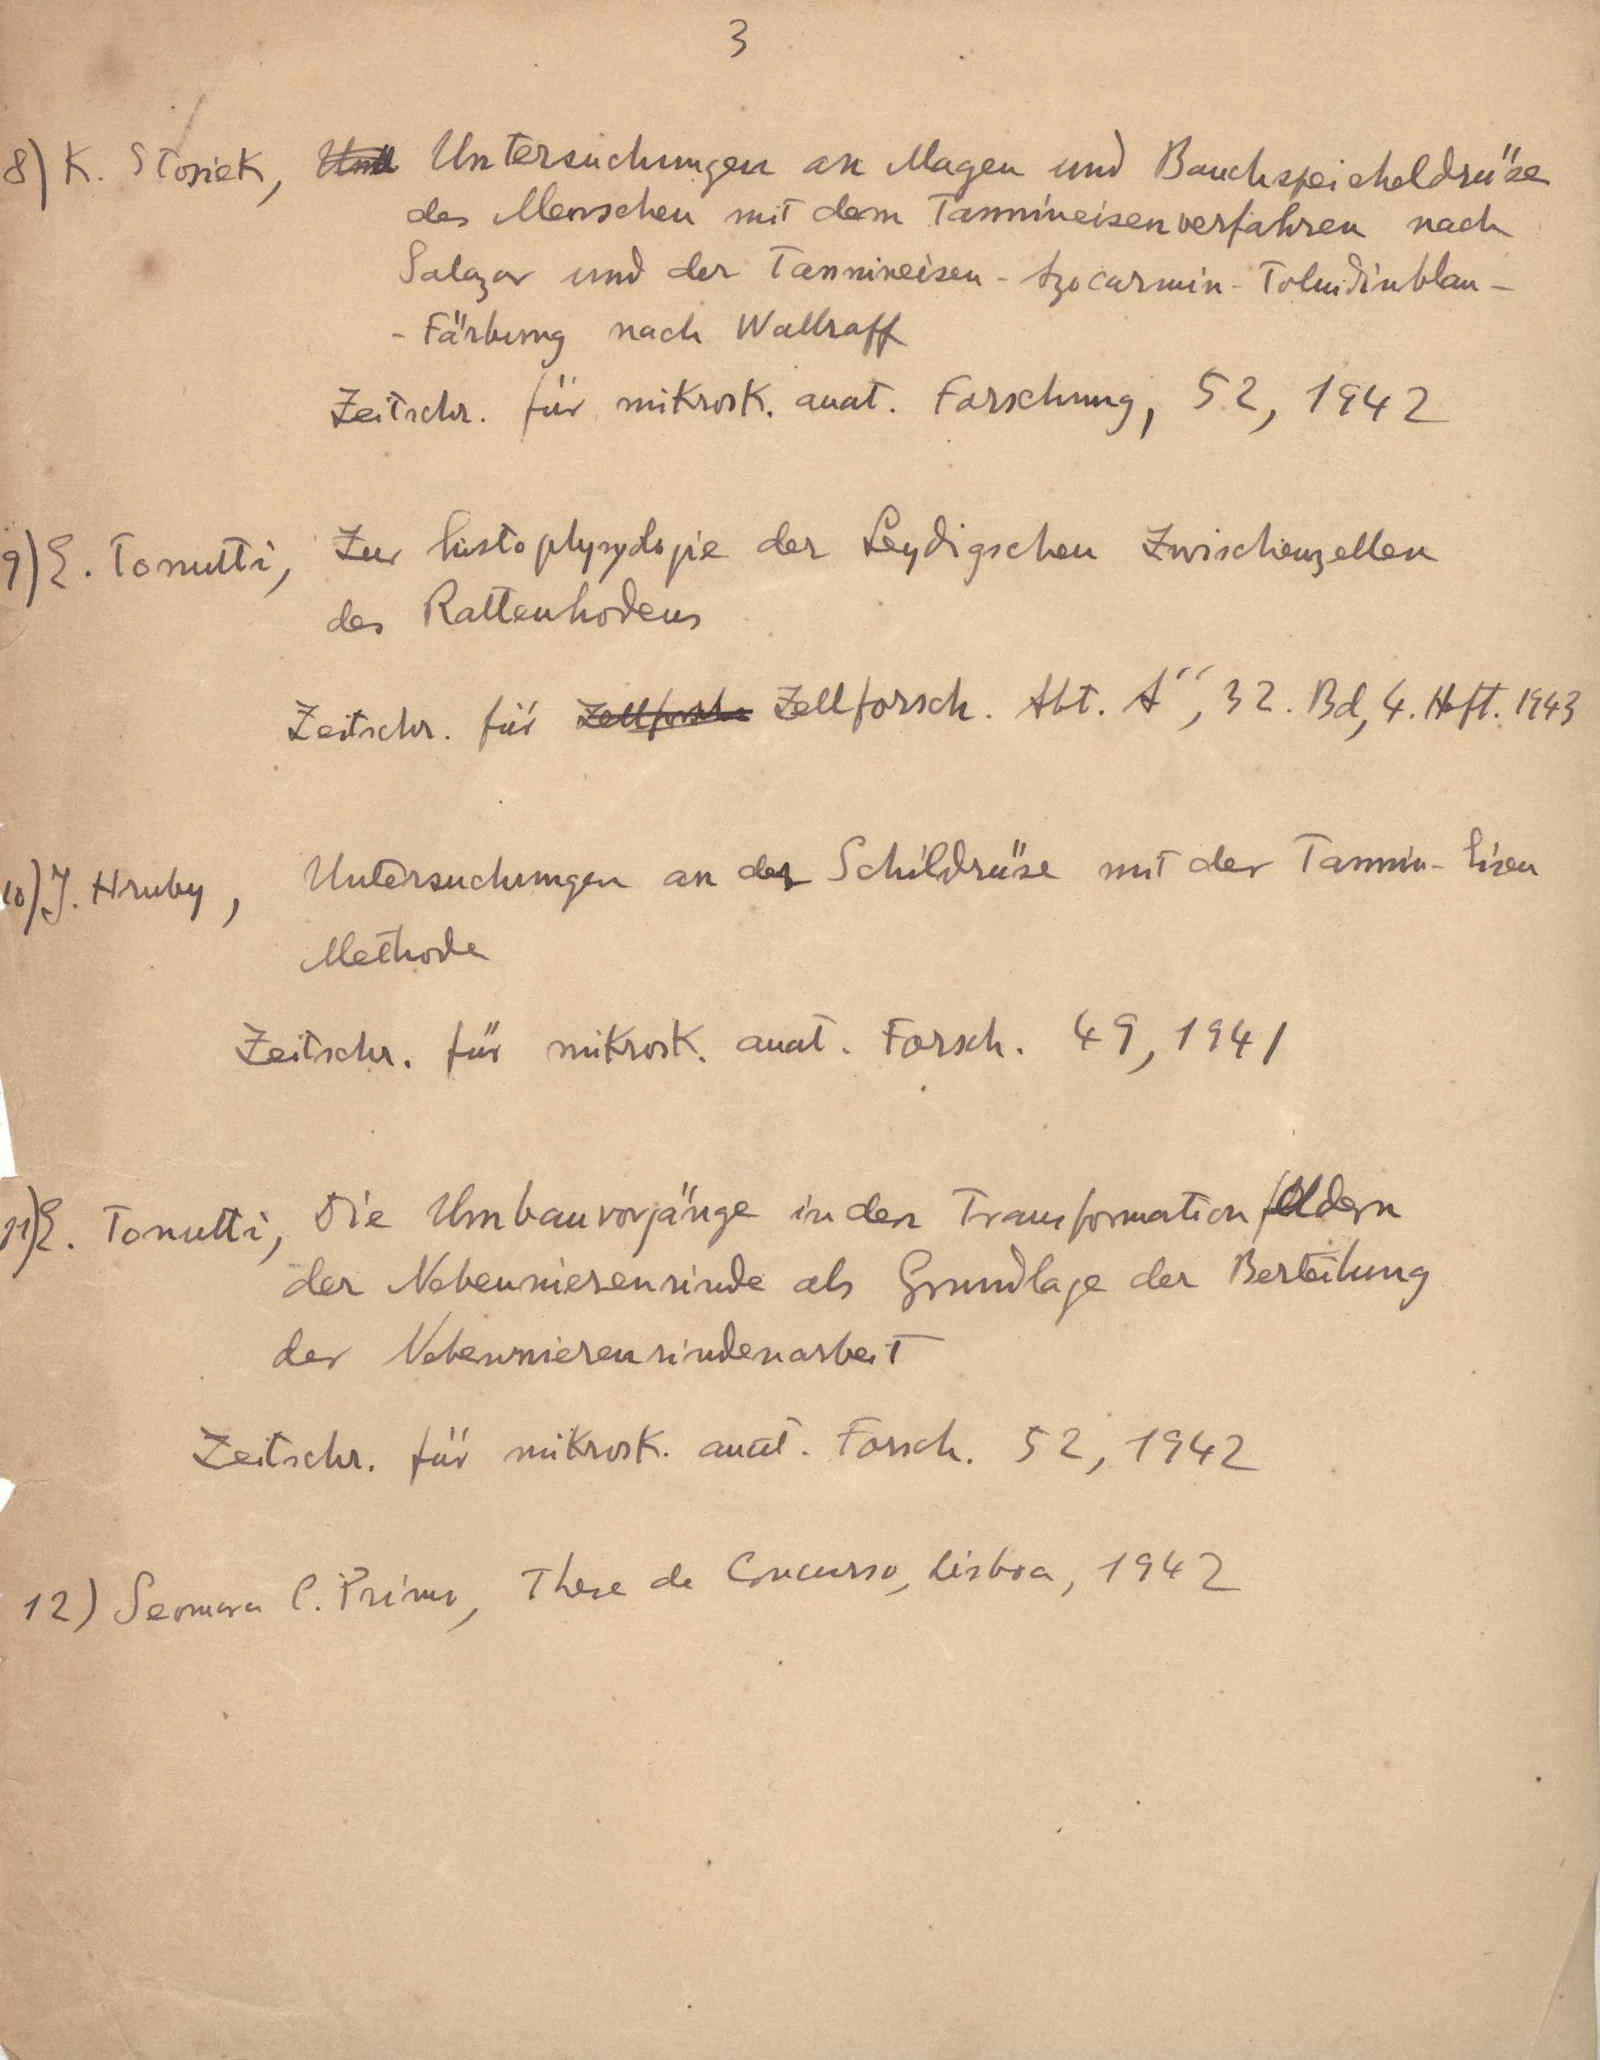 3
8) K. Stosiek, Untersuchungen an Magen und Bauchspeicheldrüse
des Menschen mit dem Tannineisenverfahren nach
Salazar und der Tannineisen - Azocarmin - Toluidinblau -
- Färbung nach Wallraff
Zeitschr. für mikrosk. anat. Forschung, 52, 1942
9) E. Tonutti, Zur histophysyologie der Leydigschen Zwischenzellen
des Rattenhodens
Zeitschr. für Zellforsch. Abt. A", 32. Bd, 4. Heft. 1943
10) J. Hruby, Untersuchungen an der Schildrüse mit der Tannin-Eisen
Methode
Zeitschr. für mikrosk. anat. Forsch. 49, 1941
11) E. Tonutti, Die Umbauvorgänge in den Transformationfeldern
der Nebennierenrinde als Grundlage der Berteilung
der Nebennierenrindenarbeit
Zeitschr. für mikrosk. anat. Forsch. 52, 1942
12) Seomara C. Primo, These de Concurso, Lisboa, 1942